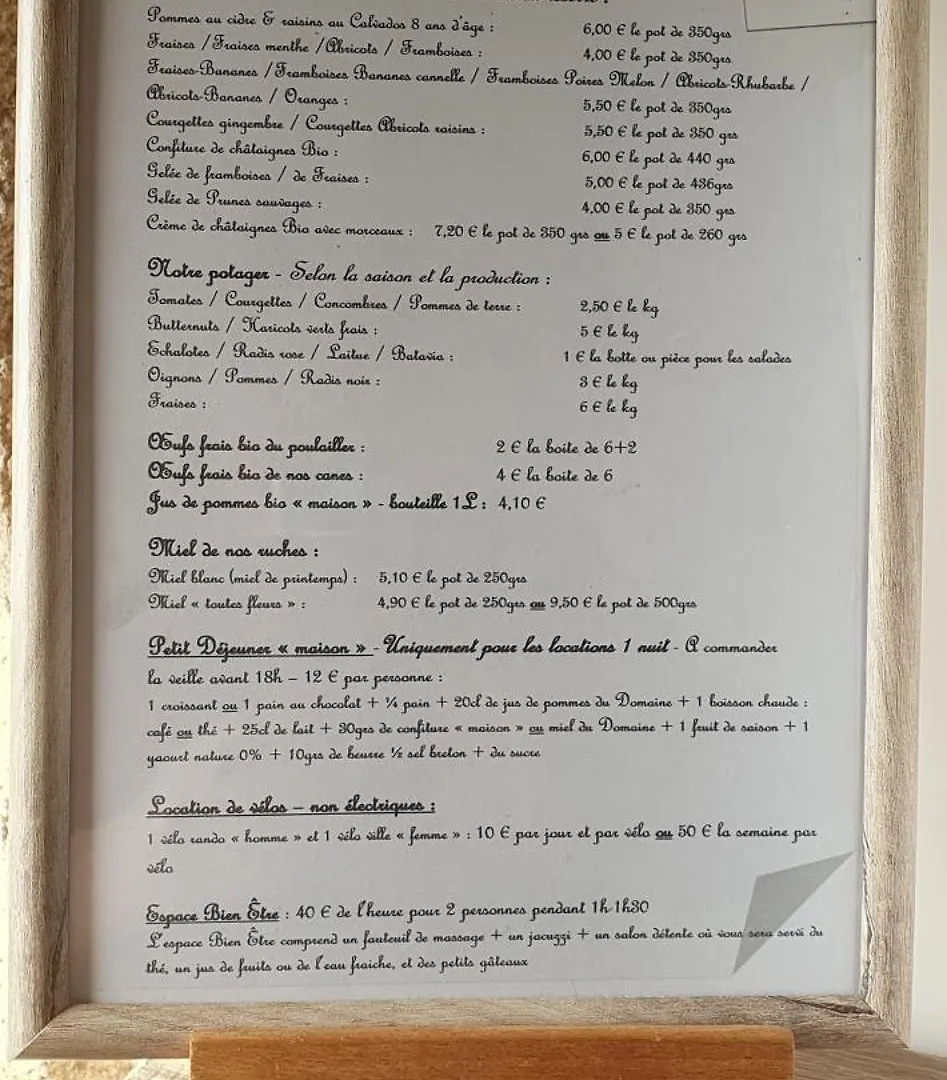 Pommes au cidre & raisins au Calvados 8 ans d'âge : 6,00 € le pot de 350grs
Fraises / Fraises menthe / Abricots / Framboises : 4,00 € le pot de 350grs
Fraises-Bananes / Framboises Bananes cannelle / Framboises Poires Melon / Abricots-Rhubarbe /
Abricots-Bananes / Oranges : 5,50 € le pot de 350grs
Courgettes gingembre / Courgettes Abricots raisins : 5,50 € le pot de 350 grs
Confiture de châtaignes Bio : 6,00 € le pot de 440 grs
Gelée de framboises / de Fraises : 5,00 € le pot de 436grs
Gelée de Prunes sauvages : 4,00 € le pot de 350 grs
Crème de châtaignes Bio avec morceaux : 7,20 € le pot de 350 grs ou 5 € le pot de 260 grs
Notre potager - Selon la saison et la production :
Tomates / Courgettes / Concombres / Pommes de terre : 2,50 € le kg
Butternuts / Haricots verts frais : 5 € le kg
Echalotes / Radis rose / Laitue / Batavia : 1 € la botte ou pièce pour les salades
Oignons / Pommes / Radis noir : 3 € le kg
Fraises : 6 € le kg
Œufs frais bio du poulailler : 2 € la boite de 6+2
Œufs frais bio de nos canes : 4 € la boite de 6
Jus de pommes bio « maison » - bouteille 1L : 4,10 €
Miel de nos ruches :
Miel blanc (miel de printemps) : 5,10 € le pot de 250grs
Miel « toutes fleurs » : 4,90 € le pot de 250grs ou 9,50 € le pot de 500grs
Petit Déjeuner « maison » - Uniquement pour les locations 1 nuit - A commander
la veille avant 18h – 12 € par personne :
1 croissant ou 1 pain au chocolat + ¼ pain + 20cl de jus de pommes du Domaine + 1 boisson chaude :
café ou thé + 25cl de lait + 30grs de confiture « maison » ou miel du Domaine + 1 fruit de saison + 1
yaourt nature 0% + 10grs de beurre ½ sel breton + du sucre
Location de vélos – non électriques :
1 vélo rando « homme » et 1 vélo ville « femme » : 10 € par jour et par vélo ou 50 € la semaine par
vélo
Espace Bien Être : 40 € de l'heure pour 2 personnes pendant 1h 1h30
L'espace Bien Être comprend un fauteuil de massage + un jacuzzi + un salon détente où vous sera servi du
thé, un jus de fruits ou de l'eau fraiche, et des petits gâteaux